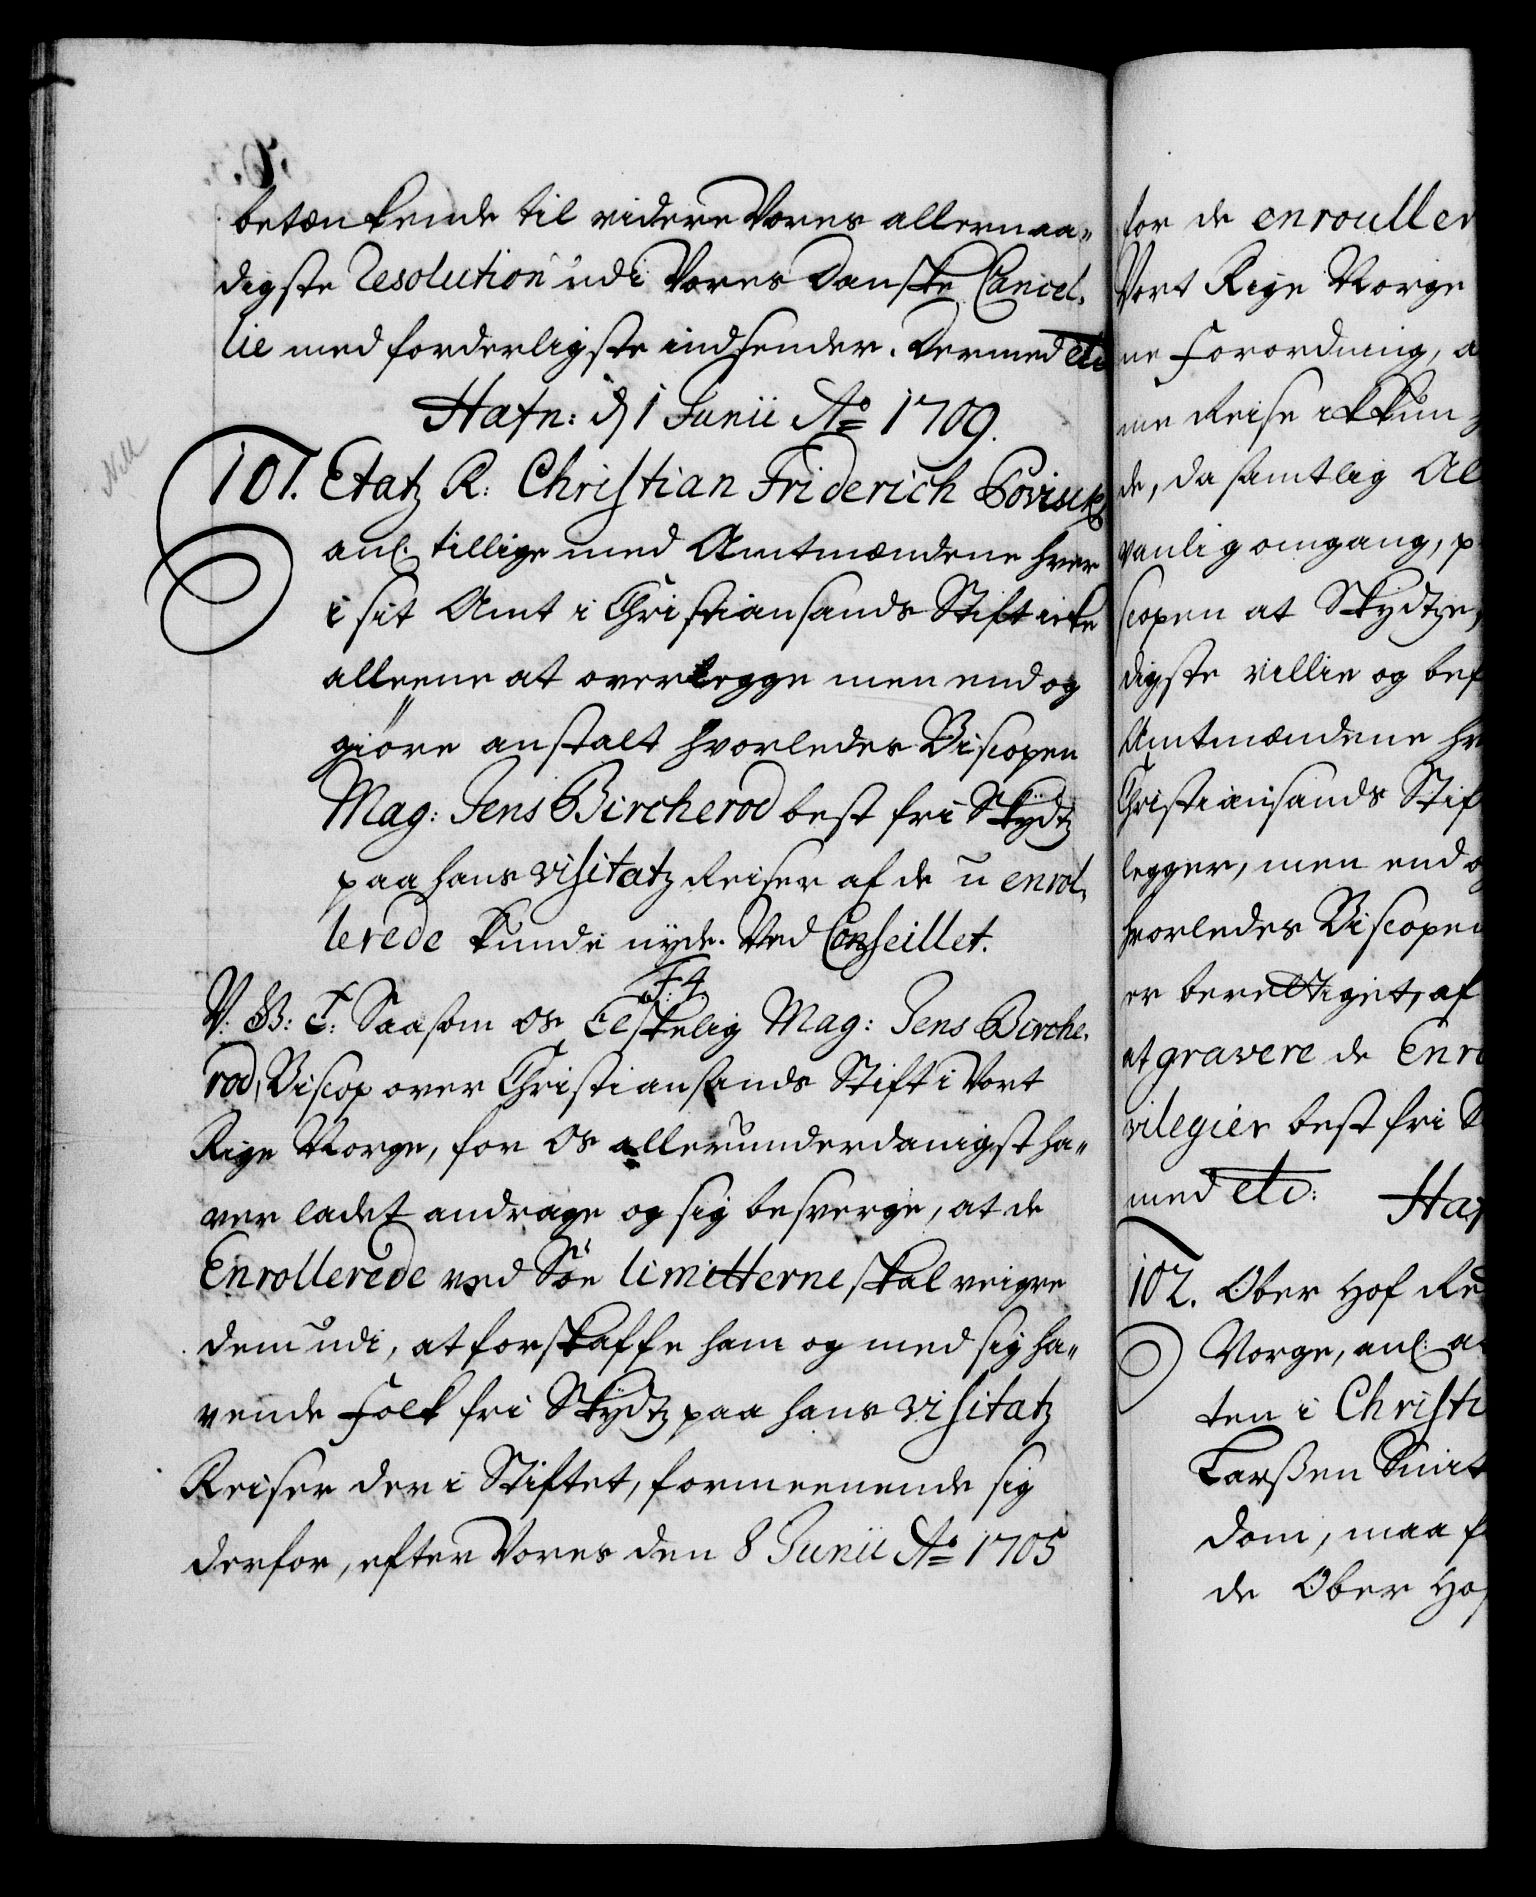 betænkende til videre Vores allernaa-
digste Resolution udi Vores Danske Cancel-
lie med forderligste indsender. Dermed etc
Hafn: d 1 Junii Ao 1709.
101. Etatz R: Christian Friderich
anl. tillige med Amtmændene hver
i sit Amt i Christiansands Stift icke
alleene at overlegge men end og
giöre anstalt hvorledes Biscopen
Mag: Jens Bircherod best fri Skydtz
paa hans visitatz Reiser af de u enrol-
lerede kunde nyde. Ved Conseillet.
F4
V: G: T: Saasom Os Elskelig Mag: Jens Birche-
rod, Biscop over Christiansands Stift i Vort
Rige Norge, for Os allerunderdanigst ha-
ver ladet andrage og sig besverge, at de
Enrollerede ved Söe limitterne skal veigre
dem udi, at forskaffe ham og med sig ha-
vende Folk fri Skydtz paa hans visitatz
Reiser der i Stiftet, formeenende sig
derfor, efter Vores den 8 Junii Ao 1705
for de enrouller
Vort Rige Norge
ne Forordning, a
me Reise
de, da samtlig Al
vanlig omgang, p
scopen at Skydtze,
digste villie og bef
Amtmændene hv
Christiansands Stif
legger, men end o
hvorledes Biscopen
er berettiget, af
at gravere de Enro
vilegier best fri S
med etc: Haf
102. Ober Hof Re
Norge, anl: a
ten i Christi
Larßen
dom, maa f
de Ober Hof